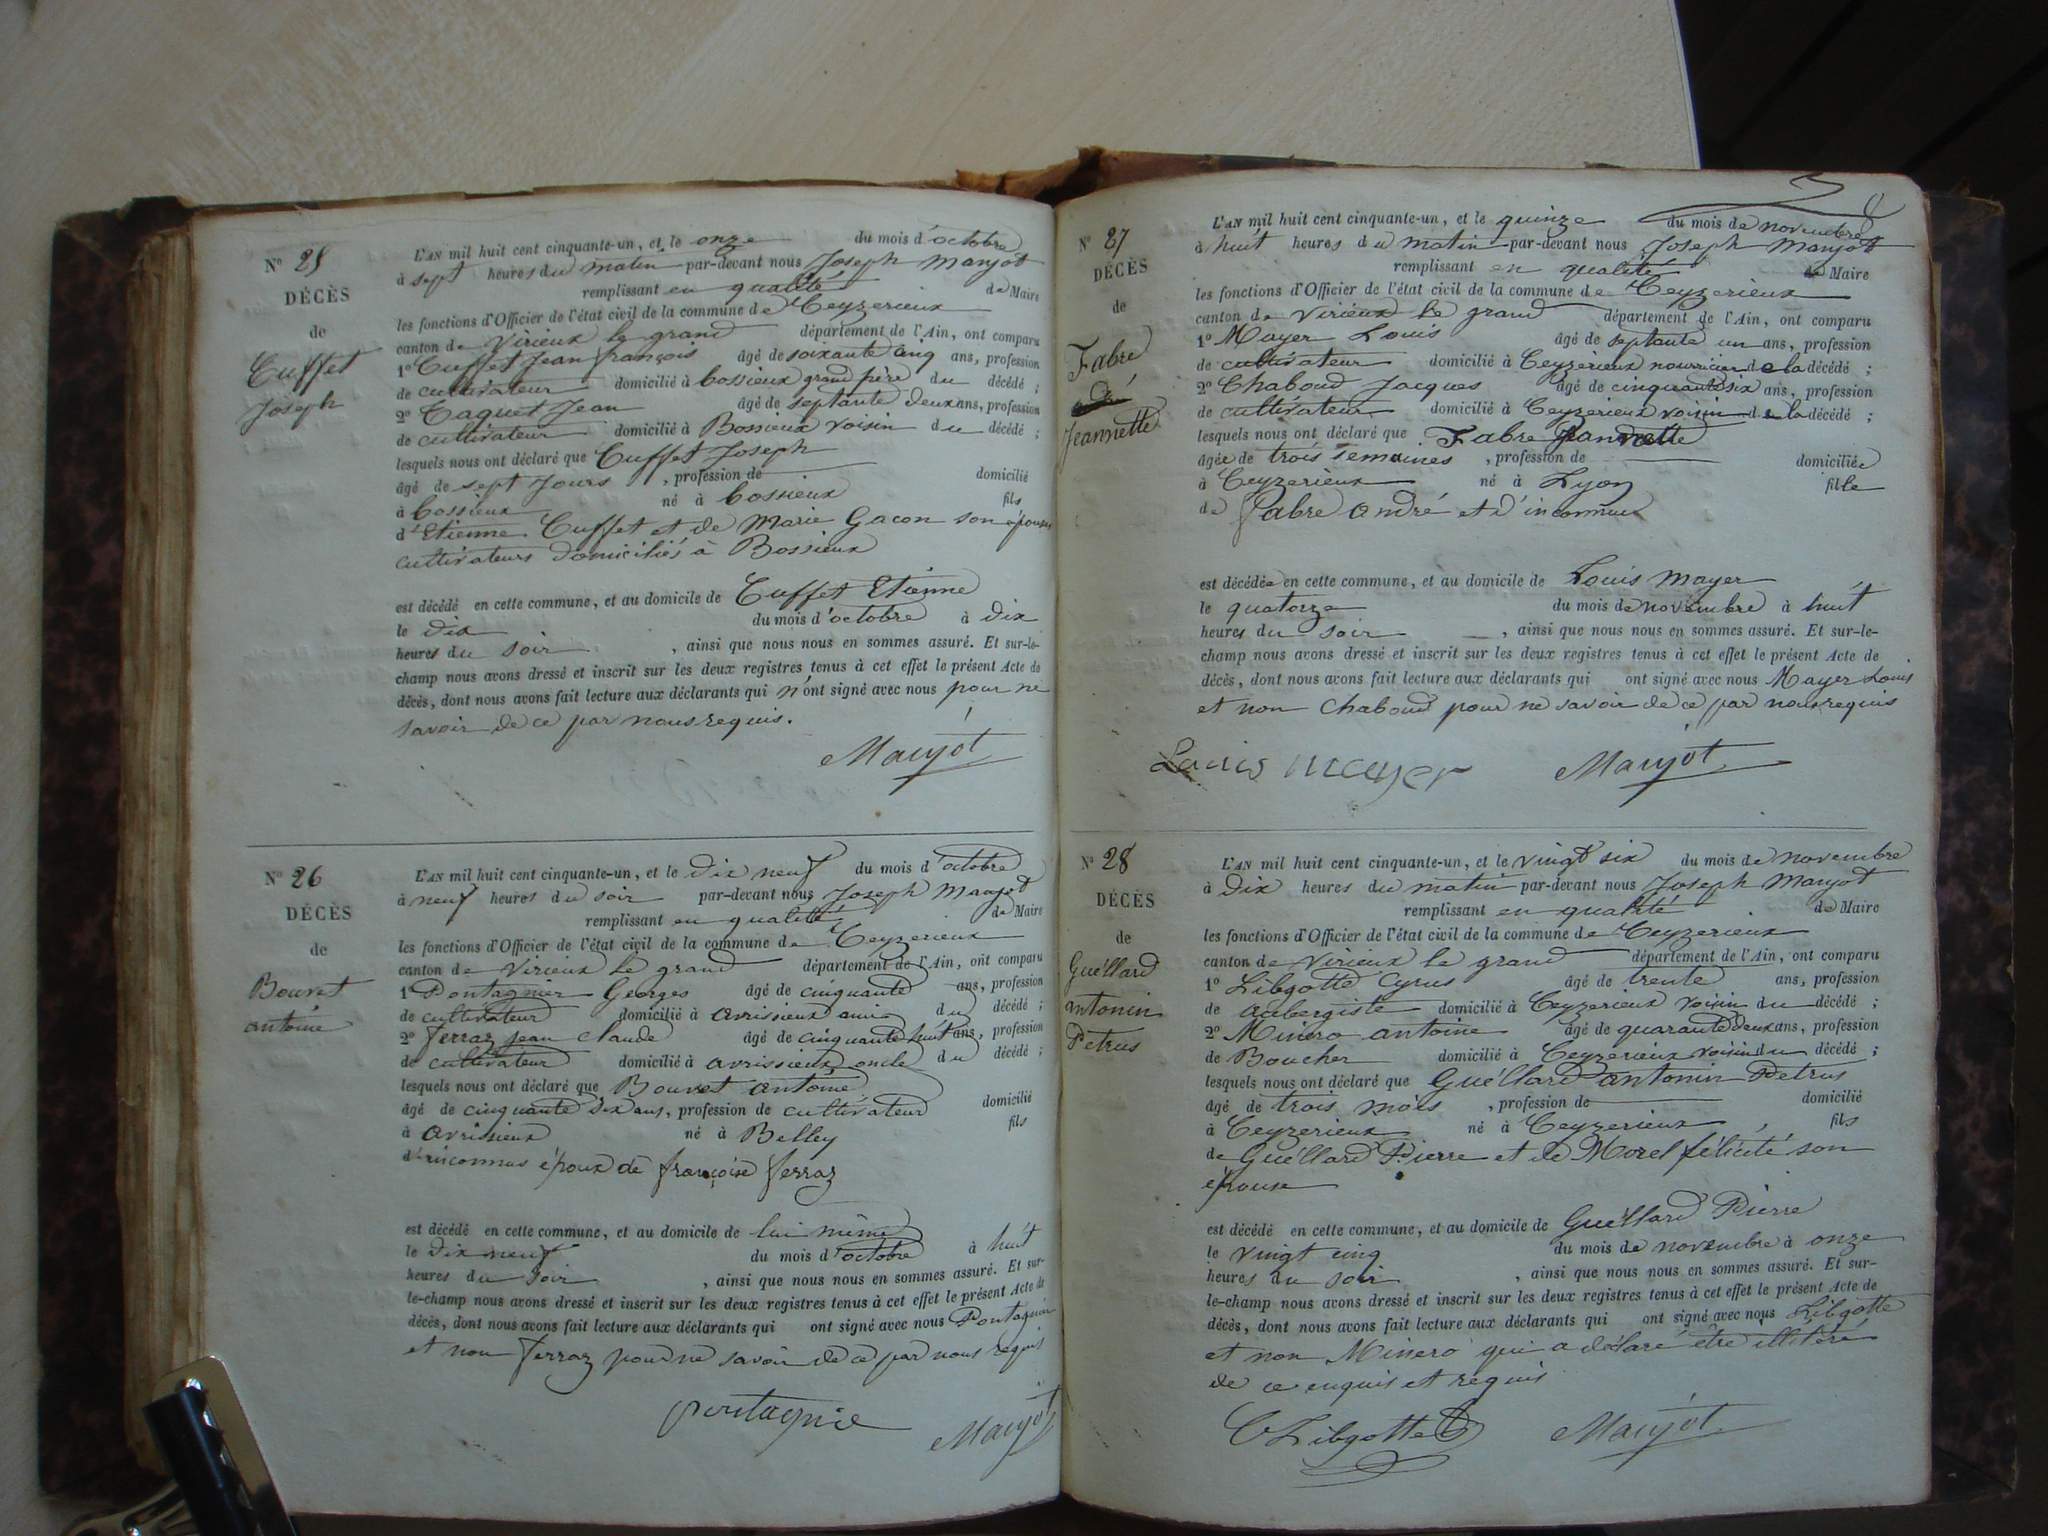 N° 25
DÉCÈS
de
Cuffet
Joseph
L'AN mil huit cent cinquante-un, et le onze du mois d'octobre
à sept heures du matin par-devant nous Joseph Manjot
remplissant en qualité de Maire
les fonctions d'Officier de l'état civil de la commune de Ceyzerieux
canton de Virieux le grand département de l'Ain, ont comparu
1° Cuffet Jean françois âgé de soixante cinq ans, profession
de cultivateur domicilié à bossieux grand père du décédé ;
2° Taquet Jean âgé de septante deux ans, profession
de cultivateur domicilié à Bossieux voisin du décédé ;
lesquels nous ont déclaré que Cuffet Joseph
âgé de sept Jours , profession de domicilié
à bossieux né à bossieux fils
d'Etienne Cuffet et de Marie Gacon son épouse
cultivateurs domiciliés à Bossieux
est décédé en cette commune, et au domicile de Cuffet Etienne
le dix du mois d'octobre à dix
heures du soir , ainsi que nous nous en sommes assuré. Et sur-le-
champ nous avons dressé et inscrit sur les deux registres tenus à cet effet le présent Acte de
décès, dont nous avons fait lecture aux déclarants qui n'ont signé avec nous pour ne
savoir de ce par nous requis.
Manjot
N° 26
DÉCÈS
de
Bouvet
antoine
L'AN mil huit cent cinquante-un, et le dix neuf du mois d'octobre
à neuf heures du soir par-devant nous Joseph Manjot
remplissant en qualité de Maire
les fonctions d'Officier de l'état civil de la commune de Ceyzerieux
canton de Virieux le grand département de l'Ain, ont comparu
1° Pontagnier Georges âgé de cinquante ans, profession
de cultivateur domicilié à avrissieux ami du décédé ;
2° ferraz jean claude âgé de cinquante huit ans, profession
de cultivateur domicilié à avrissieux oncle du décédé ;
lesquels nous ont déclaré que Bouvet antoine
âgé de cinquante six ans, profession de cultivateur domicilié
à avrissieux né à Belley fils
d'inconnus époux de françoise ferraz
est décédé en cette commune, et au domicile de lui même
le dix neuf du mois d'octobre à huit
heures du soir , ainsi que nous nous en sommes assuré. Et sur-
le-champ nous avons dressé et inscrit sur les deux registres tenus à cet effet le présent Acte de
décès, dont nous avons fait lecture aux déclarants qui ont signé avec nous Pontagnier
et non ferraz pour ne savoir de ce par nous requis
pontagnie Manjot
N° 27
DÉCÈS
de
Fabre
Jeannette
L'AN mil huit cent cinquante-un, et le quinze du mois de novembre
à huit heures du matin par-devant nous Joseph Manjot
remplissant en qualité de Maire
les fonctions d'Officier de l'état civil de la commune de Ceyzerieux
canton de Virieux le grand département de l'Ain, ont comparu
1° Mayer Louis âgé de septante un ans, profession
de cultivateur domicilié à Ceyzerieux nourricier de la décédé ;
2° Chaboud Jacques âgé de cinquante six ans, profession
de cultivateur domicilié à Ceyzerieux voisin de la décédé ;
lesquels nous ont déclaré que Fabre Jeannette
âgée de trois semaines , profession de domiciliée
à Ceyzerieux né à Lyon fille
de fabre andré et d'inconnue
est décédée en cette commune, et au domicile de Louis Mayer
le quatorze du mois de novembre à huit
heures du soir , ainsi que nous nous en sommes assuré. Et sur-le-
champ nous avons dressé et inscrit sur les deux registres tenus à cet effet le présent Acte de
décès, dont nous avons fait lecture aux déclarants qui ont signé avec nous Mayer Louis
et non Chaboud pour ne savoir de ce par nous requis
Louis mayer Manjot
N° 28
DÉCÈS
de
Guéllard
antonin
Petrus
L'AN mil huit cent cinquante-un, et le vingt six du mois de novembre
à dix heures du matin par-devant nous Joseph Manjot
remplissant en qualité de Maire
les fonctions d'Officier de l'état civil de la commune de Ceyzerieux
canton de Virieux le grand département de l'Ain, ont comparu
1° Libgotte Cyrus âgé de trente ans, profession
de aubergiste domicilié à Ceyzerieux voisin du décédé ;
2° Minero antoine âgé de quarante deux ans, profession
de Boucher domicilié à Ceyzerieux voisin du décédé ;
lesquels nous ont déclaré que Guéllard antonin Petrus
âgé de trois mois , profession de domicilié
à Ceyzerieux né à Ceyzerieux , fils
de Guéllard Pierre et de Morel félicité son
épouse
est décédé en cette commune, et au domicile de Guéllard Pierre
le vingt cinq du mois de novembre à onze
heures du soir , ainsi que nous nous en sommes assuré. Et sur-
le-champ nous avons dressé et inscrit sur les deux registres tenus à cet effet le présent Acte de
décès, dont nous avons fait lecture aux déclarants qui ont signé avec nous Libgotte
et non Minero qui a déclaré être illitéré
de ce enquis et requis
C Libgotte Manjot